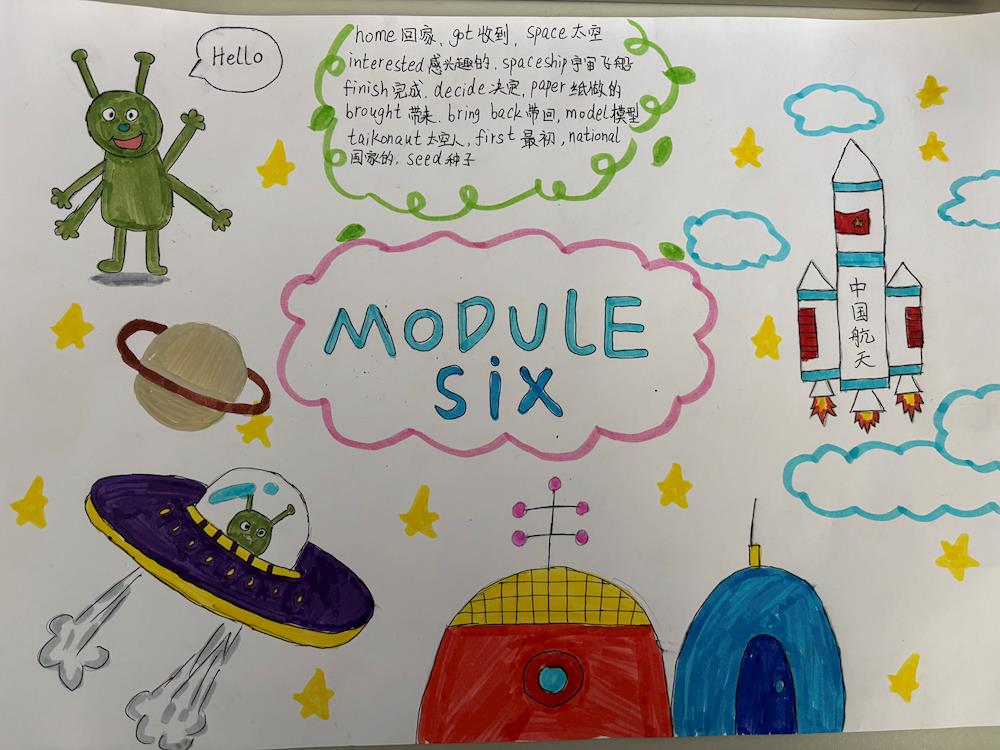 Hello
home 回家. got 收到, space 太空
interested 感兴趣的. spaceship 宇宙飞船
finish 完成. decide 决定, paper 纸做的
brought 带来. bring back 带回, model 模型
taikonaut 太空人, first 最初, national
国家的. seed 种子
MODULE
SiX
中国航天